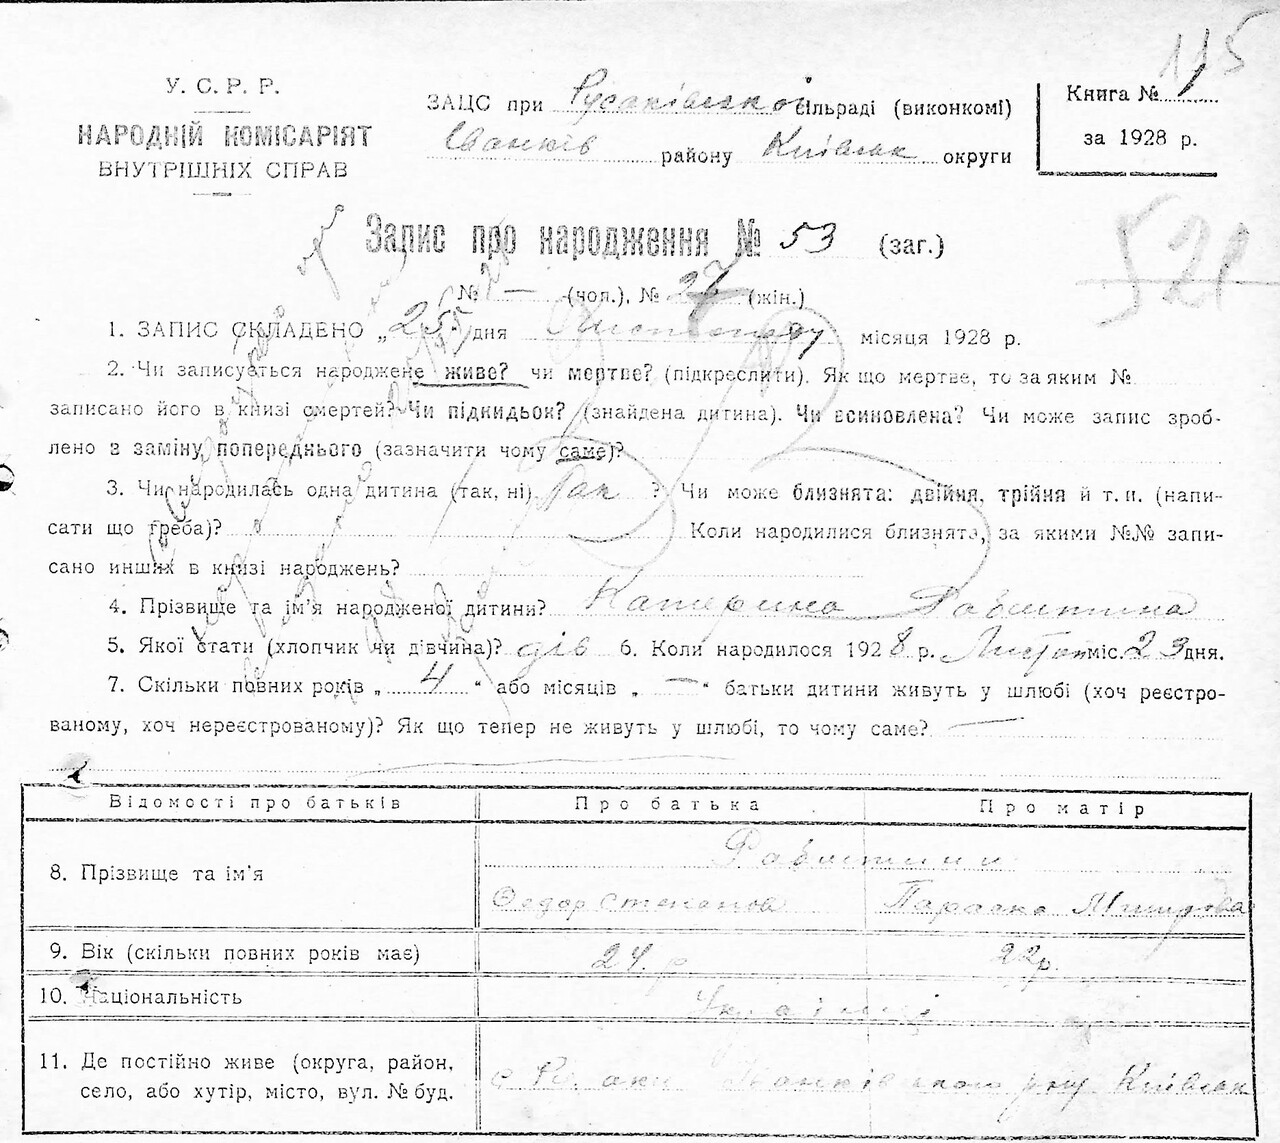 115
У. С. Р. Р.
НАРОДНІЙ КОМІСАРІЯТ
ВНУТРІШНІХ СПРАВ
ЗАЦС при Русаківській сільраді (виконкомі)
Іванків району Київськ округи
Книга № 1
за 1928 р.
Запис про народження № 53 (заг.)
521
№ — (чол.), № 27 (жін.)
1. ЗАПИС СКЛАДЕНО „25" дня Листопаду місяця 1928 р.
2. Чи записується народжене живе? чи мертве? (підкреслити). Як що мертве, то за яким №
записано його в книзі смертей? Чи підкидьок? (знайдена дитина). Чи всиновлена? Чи може запис зроб-
лено в заміну попереднього (зазначити чому саме)?
3. Чи народилась одна дитина (так, ні) Так ? Чи може близнята: двійня, трійня й т. п. (напи-
сати що треба)? Коли народилися близнята, за якими №№ запи-
сано инших в книзі народжень?
4. Прізвище та ім'я народженої дитини? Катерина
5. Якої стати (хлопчик чи дівчина)? дів 6. Коли народилося 1928 р. Листоп міс. 23 дня.
7. Скільки повних років „ 4 " або місяців „ — " батьки дитини живуть у шлюбі (хоч реєстро-
ваному, хоч нереєстрованому)? Як що тепер не живуть у шлюбі, то чому саме? —
Відомості про батьків Про батька Про матір
8. Прізвище та ім'я
Федор Степанов Параска
9. Вік (скільки повних років має) 24 р 22 р.
10. Національність Українці
11. Де постійно живе (округа, район,
село, або хутір, місто, вул. № буд.
с Русаки Іванківського р-ну Київськ